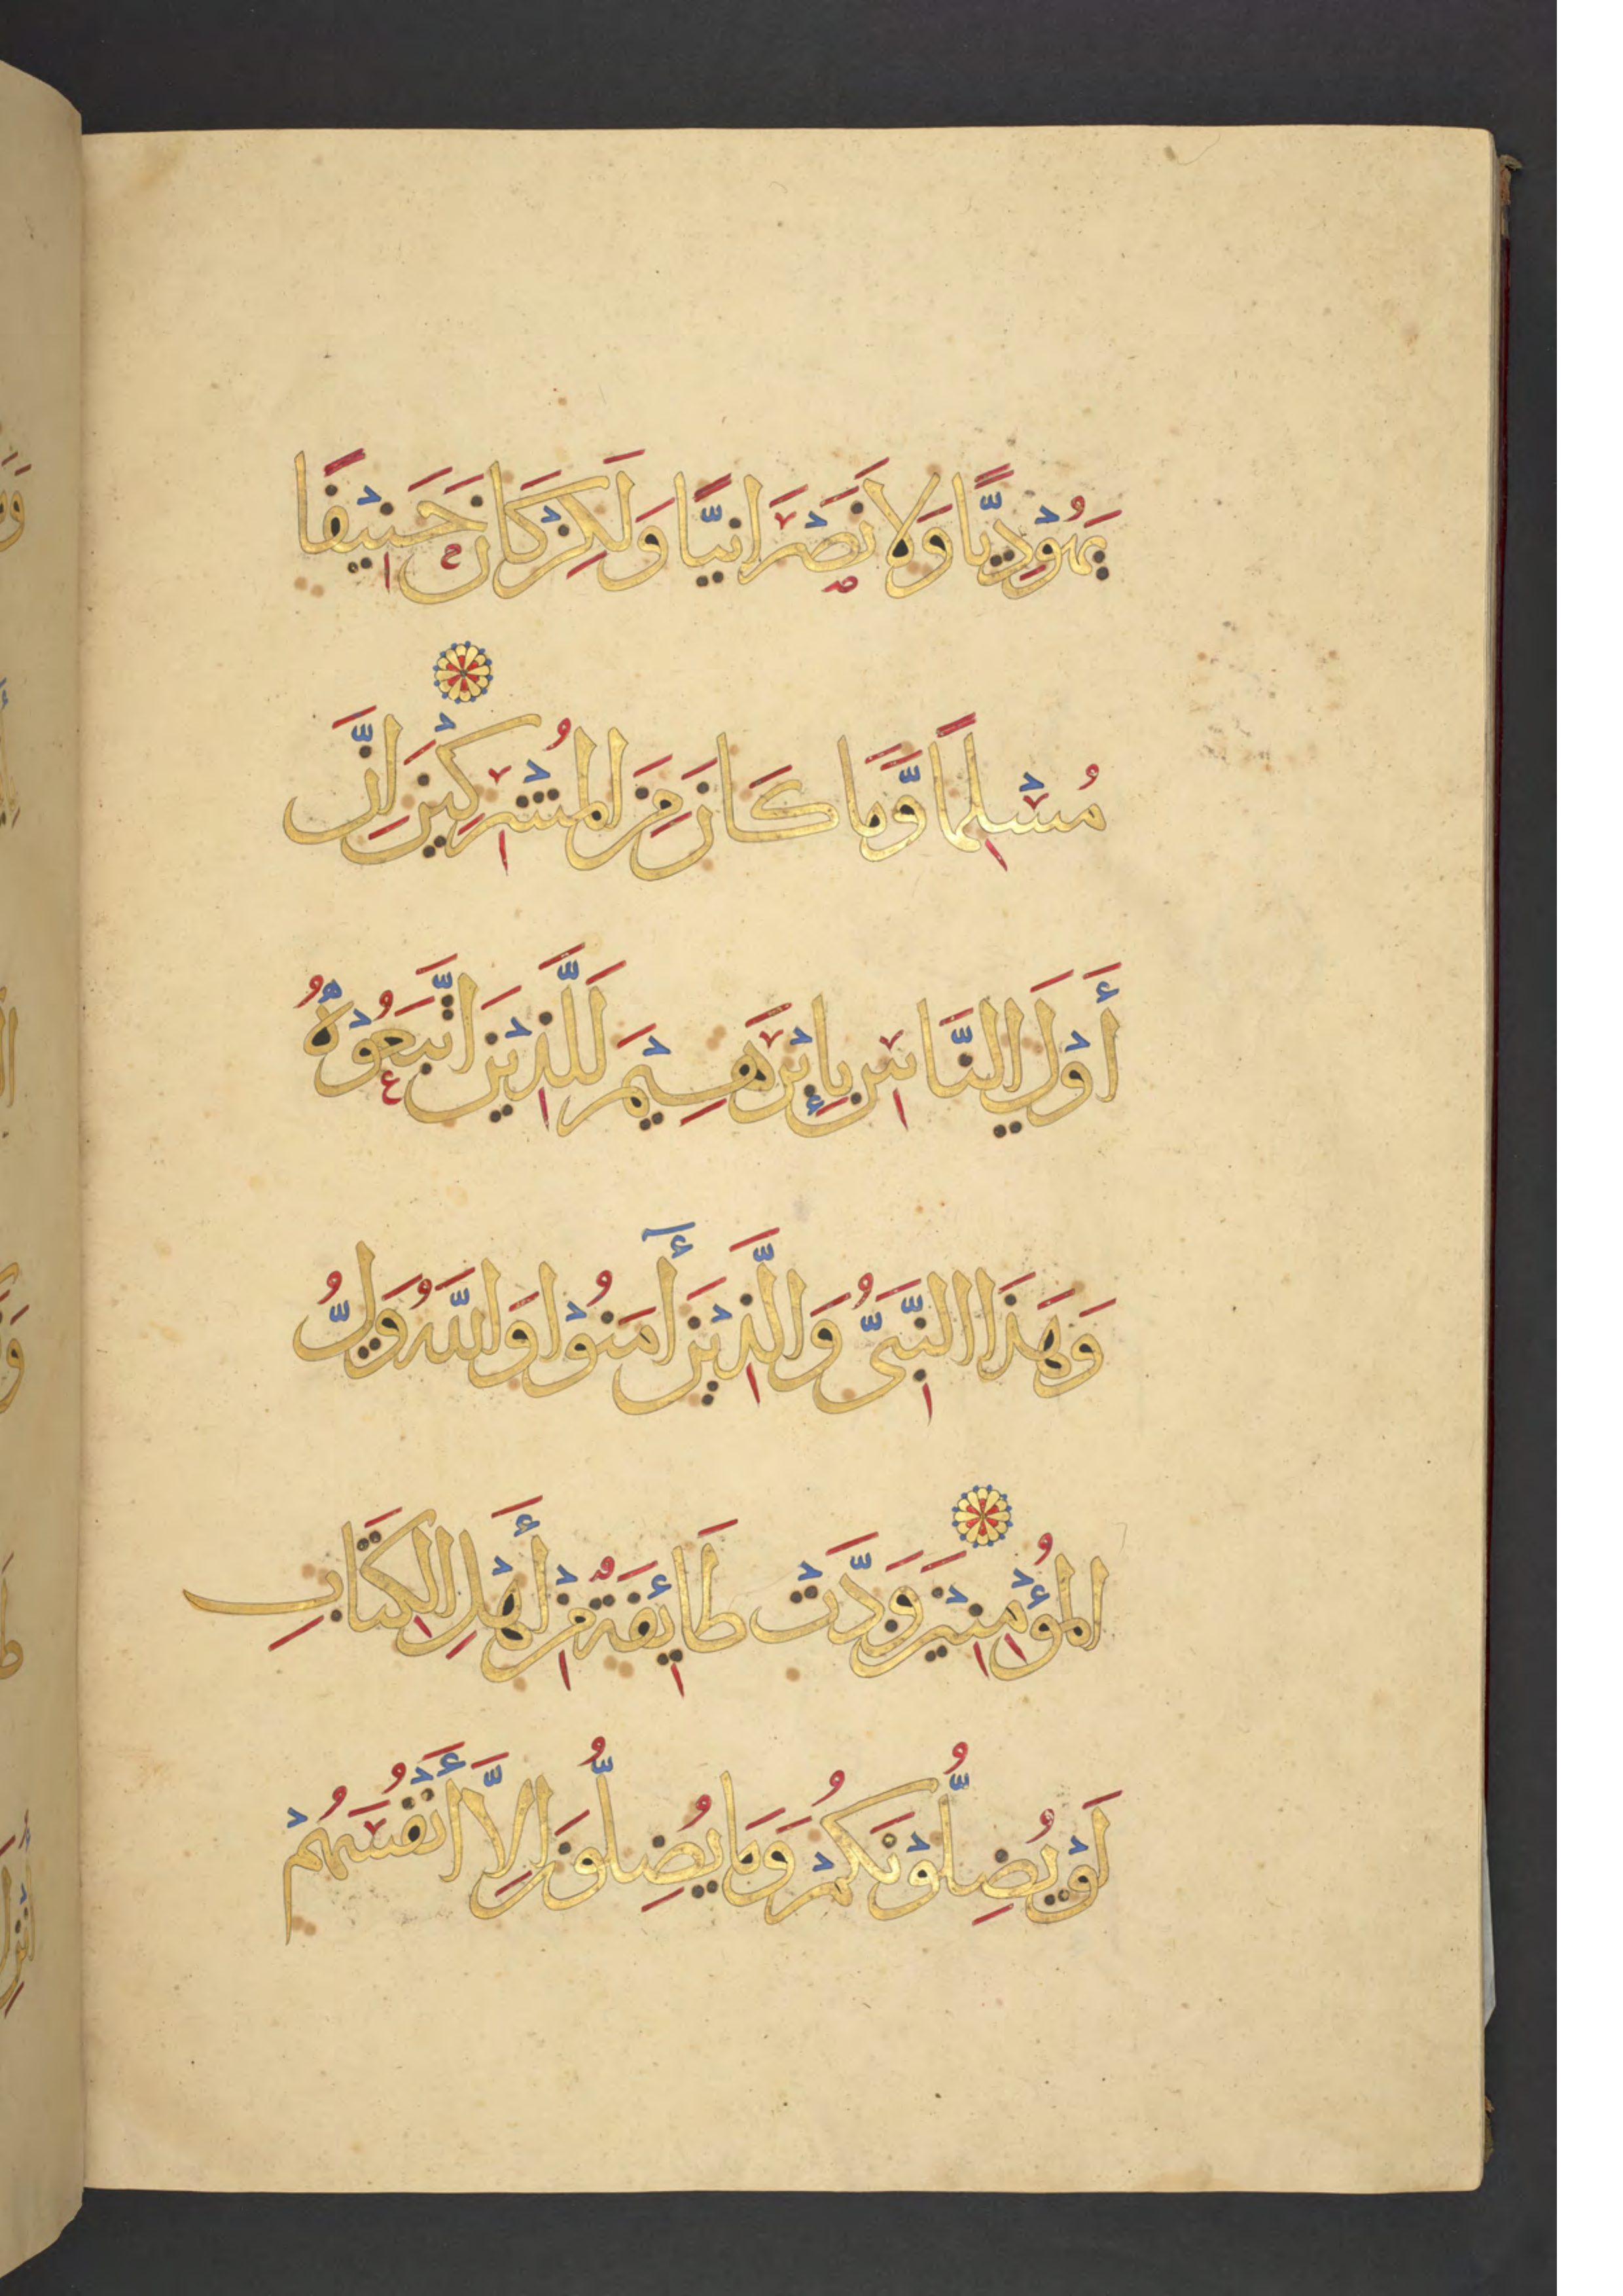 يَهُوْدِيًّا وَلَا نَصْرَانِيًّا وَلَكِنْ كَانَ حَنِيْفًا
مُسْلِمًا وَّمَا كَانَ مِنَ الْمُشْرِكِيْنَ اِنَّ
أَوْلَي النَّاسِ بِإِبْرَهِيْمَ لَلَّذِيْنَ اتَّبَعُوْهُ
وَهَذَا النَّبِيُّ وَالَّذِيْنَ أٓمَنُوْا وَاللَّهُ وَلِيُّ
الْمُؤْمِنِيْنَ وَدَّتْ طَائِفَةٌ مِنْ أَهْلِ الْكِتَابِ
لَوْ يُضِلُّوْنَكُمْ وَمَا يُضِلُّوْنَ اِلَّا أَنْفُسَهُمْ